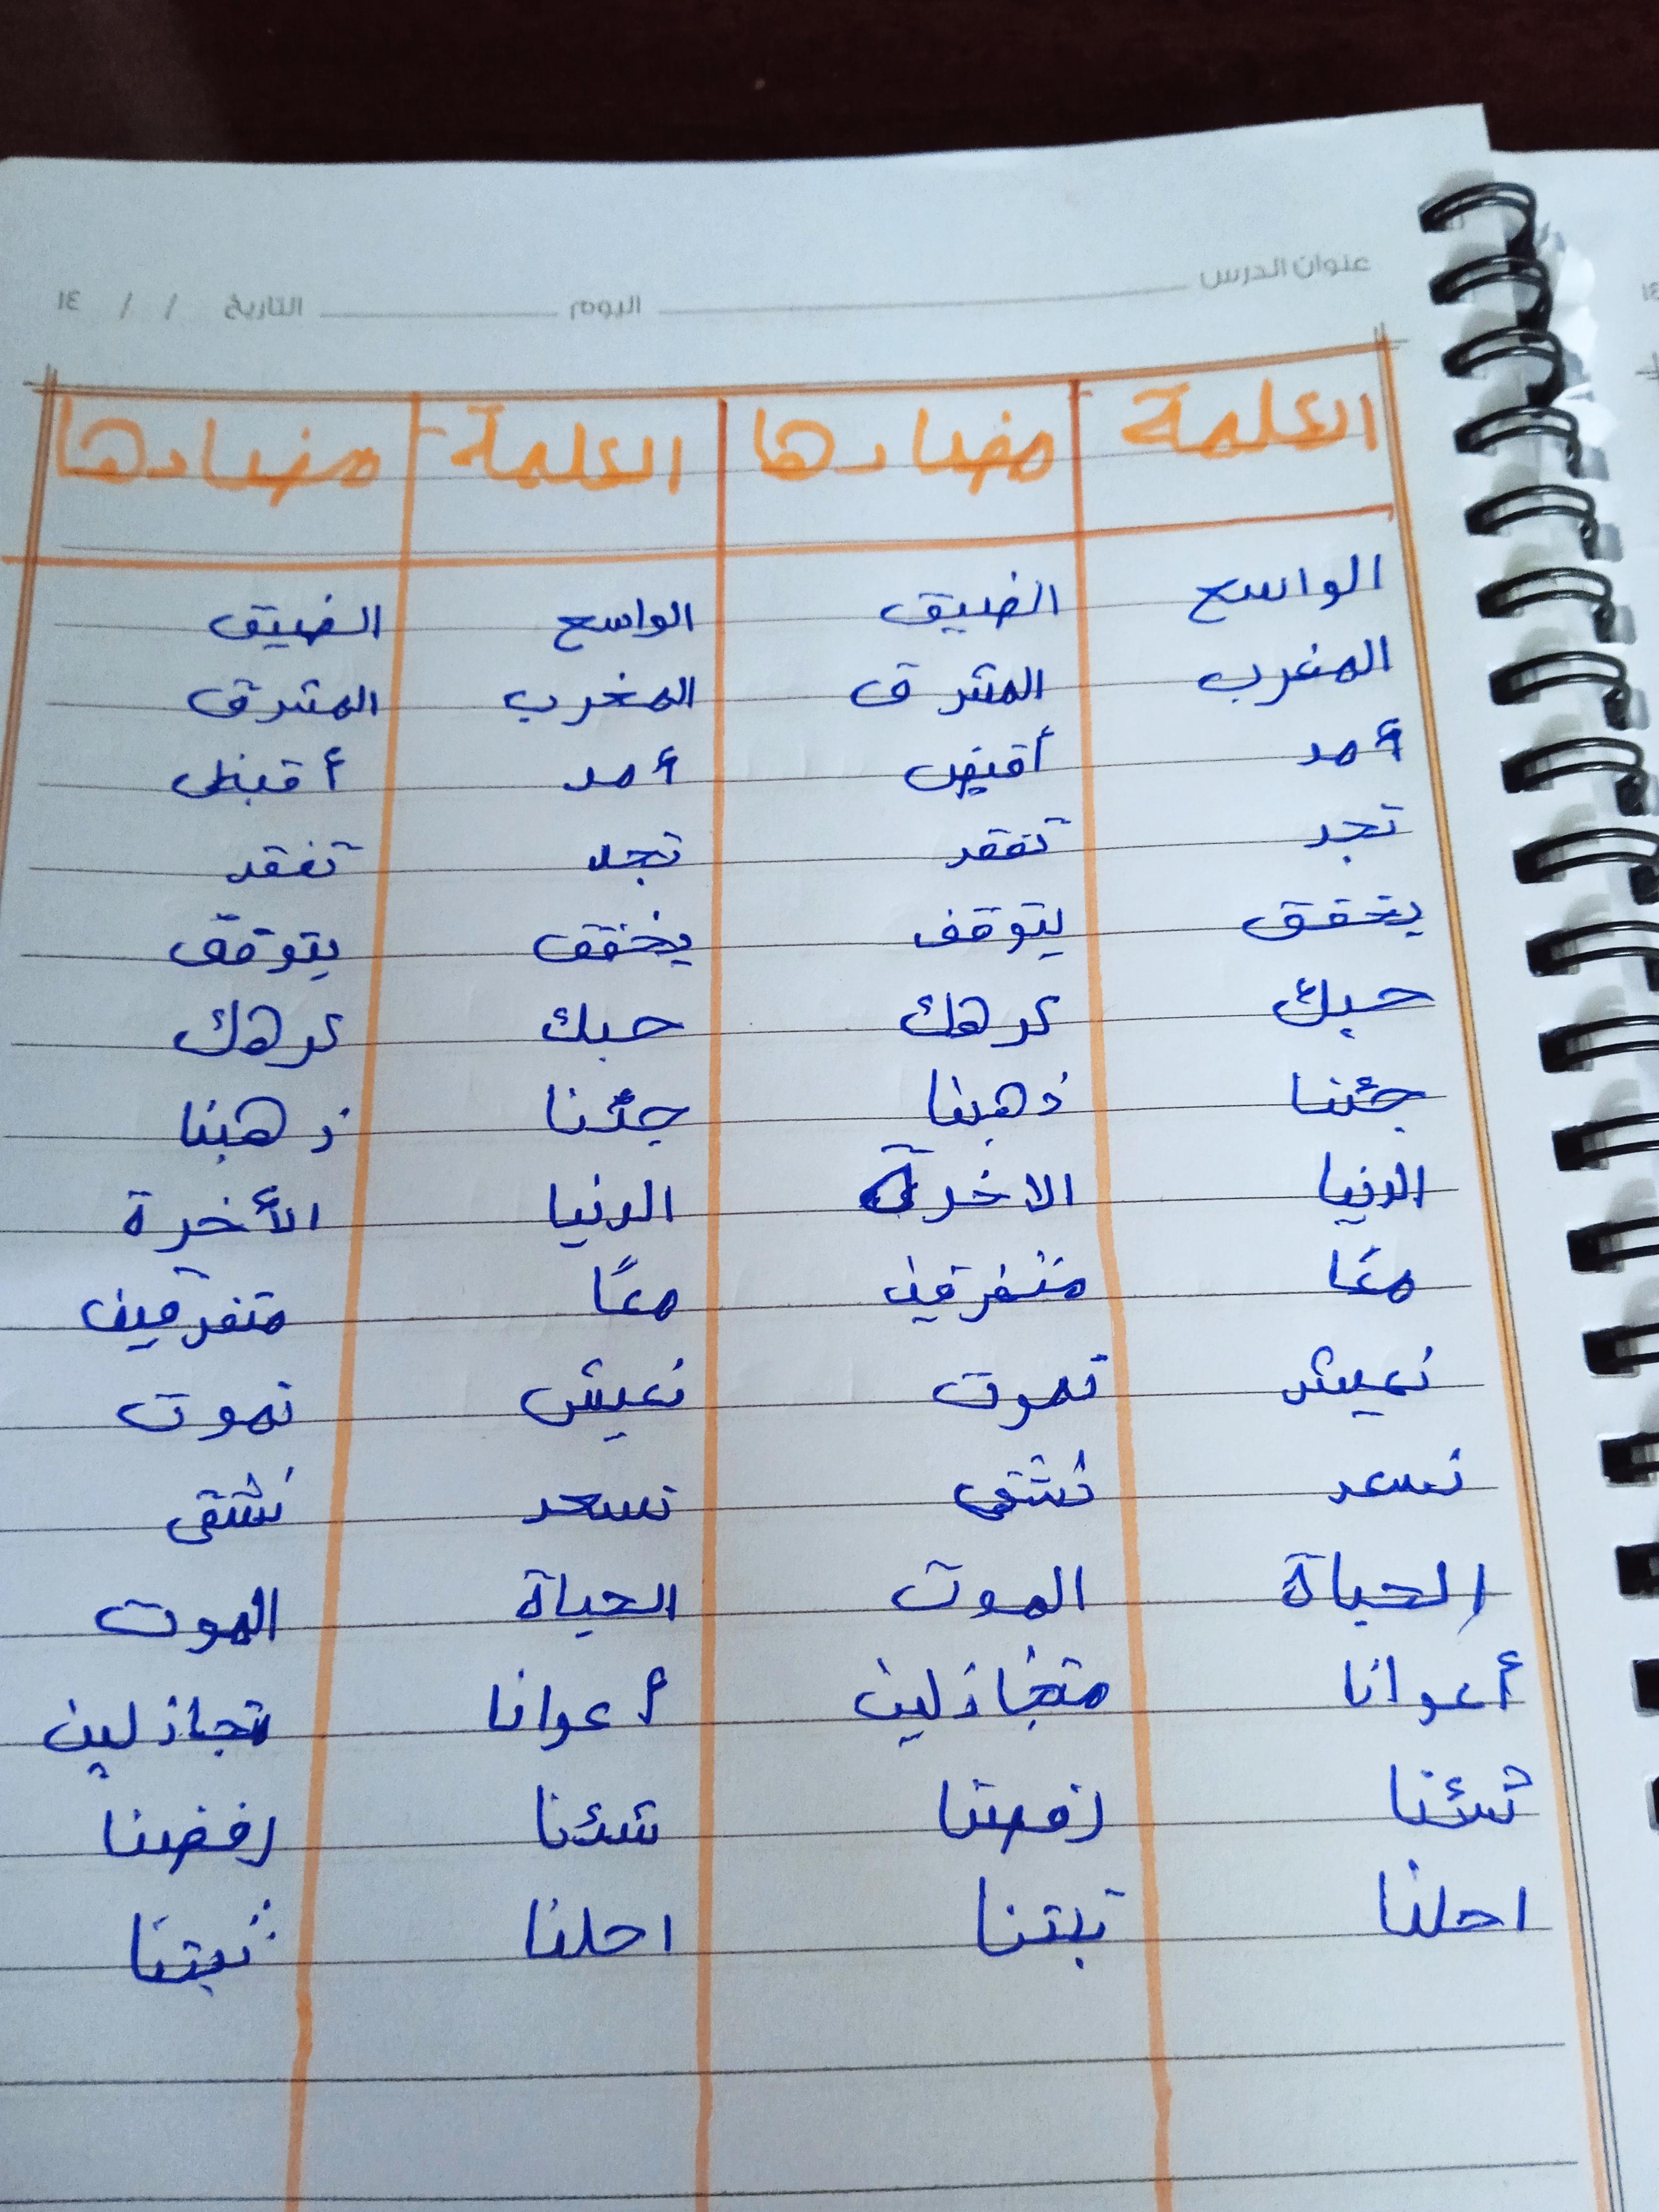 عنوان الدرس اليوم التاريخ / / ١٤
الكلمة مضادها الكلمة مضادها
الواسع الضيق الواسع الضيق
المغرب المشرق المغرب المشرق
أمد أقبض أمد أقبض
تجد تفقد تجد تفقد
يخفق يتوقف يخفق يتوقف
حبك كرهك حبك كرهك
جئنا ذهبنا جئنا ذهبنا
الدنيا الاخرة الدنيا الأخرة
معًا متفرقين معًا متفرقين
نعيش نموت نعيش نموت
نسعد نشقى نسعد نشقى
الحياة الموت الحياة الموت
أعوانا متخاذلين أعوانا تجاذلين
شئنا رفضنا شئنا رفضنا
احلنا تبتنا احلنا ثبتنا